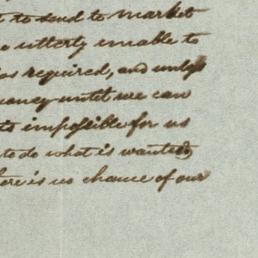 t to send to market
e utterly unable to
as required, and unless
money until we can
ts impossible for us
to do what is wanted,
here is no chance of our